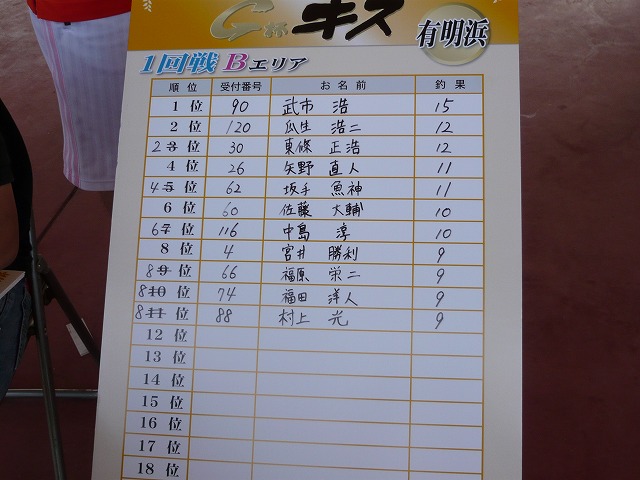 G杯 キス
有明浜
1回戦 Bエリア
順位 受付番号 お名前 釣果
1位 90 武市 浩 15
2位 120 瓜生 浩二 12
2 3位 30 東條 正浩 12
4位 26 矢野 直人 11
4 5位 62 坂手 魚神 11
6位 60 佐藤 大輔 10
6 7位 116 中島 淳 10
8位 4 宮井 勝利 9
8 9位 66 福原 栄二 9
8 10位 74 福田 洋人 9
8 11位 88 村上 光 9
12位
13位
14位
15位
16位
17位
18位